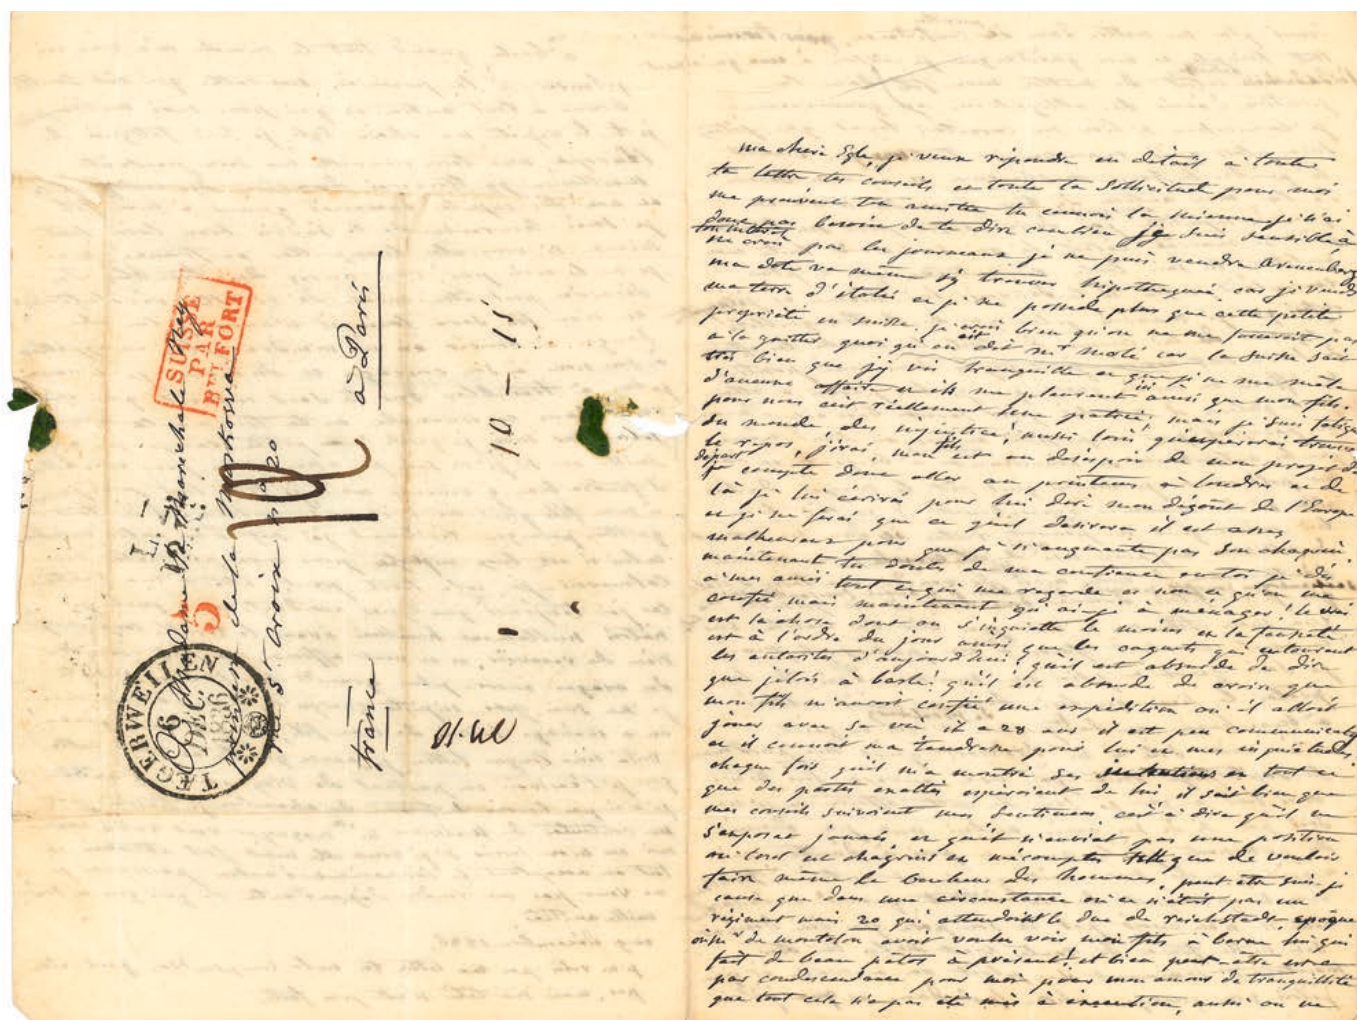 SUISSE
PAR
BELFORT
L.
5
Madame La Maréchale Ney
rue de la
n° 20
à Paris
france
10 – 15
TÆGERWEILEN
DEC.
1836
ma chere Egle, je veux répondre en détail à toute
ta lettre tes conseils et toute ta sollicitude pour moi
me prouvent ton amitié tu connois la mienne je n'ai
donc pas besoin de te dire combien je suis sensible à
ton interet
ne crois pas les journeaux je ne puis vendre Arenenberg
ma dote va même s'y trouver hipothequée car je vends
ma terre d'italie et je ne possede plus que cette petite
propriété en suisse. je crois bien qu'on ne me forceroit pas
à la quitter quoi qu'en ait dit mr molé car la suisse sait
très bien que j'y vis tranquille et que je ne me mêle
d'aucune affaire et ils me pleurent ici ainsi que mon fils.
pour nous c'est réellement une patrie, mais je suis fatiguée
du monde, des injustices, aussi loin que j'espererai trouver
le repos, j'irai, mon fils est au desespoir de mon projet de
depart
je compte donc aller au printems à londres et de
là je lui écrirai pour lui dire mon dégout de l'Europe
et je ne ferai que ce qu'il desirera il est assez
malheureux pour que je n'augmente pas son chagrin.
maintenant tu doutes de ma confiance en toi je dis
à mes amis tout ce qui me regarde et non ce qu'on me
confie mais maintenant qu'ai-je à ménager! le vrai
est la chose dont on s'inquiette le moins et la fausseté
est à l'ordre du jour ainsi que les caquets qui entourent
les autorités d'aujourd'hui! qu'il est absurde de dire
que j'étois à basle! qu'il est absurde de croire que
mon fils m'auroit confié une expédition où il alloit
jouer avec sa vie il a 28 ans il est peu communicatif
et il connoit ma tendresse pour lui et mes inquiétudes,
chaque fois qu'il m'a montré ses intentions et tout ce
que des partis exaltés esperoient de lui il sait bien que
mes conseils suivoient mes sentimens, c'est à dire qu'il ne
s'exposat jamais, et qu'il n'enviat pas une position
où tout est chagrins et mécomptes telle que de vouloir
faire même le bonheur des hommes, peut être suis-je
cause que dans une circonstance où ce n'étoit pas un
régiment mais 20 qui attendoient le duc de reichstadt, epoque
où mr de montolon avoit voulu voir mon fils à berne lui qui
fait de beau à présent! et bien peut-être est-ce
par condescendance pour moi pour mon amour de tranquillité
que tout cela n'a pas été mis à execution, aussi on ne